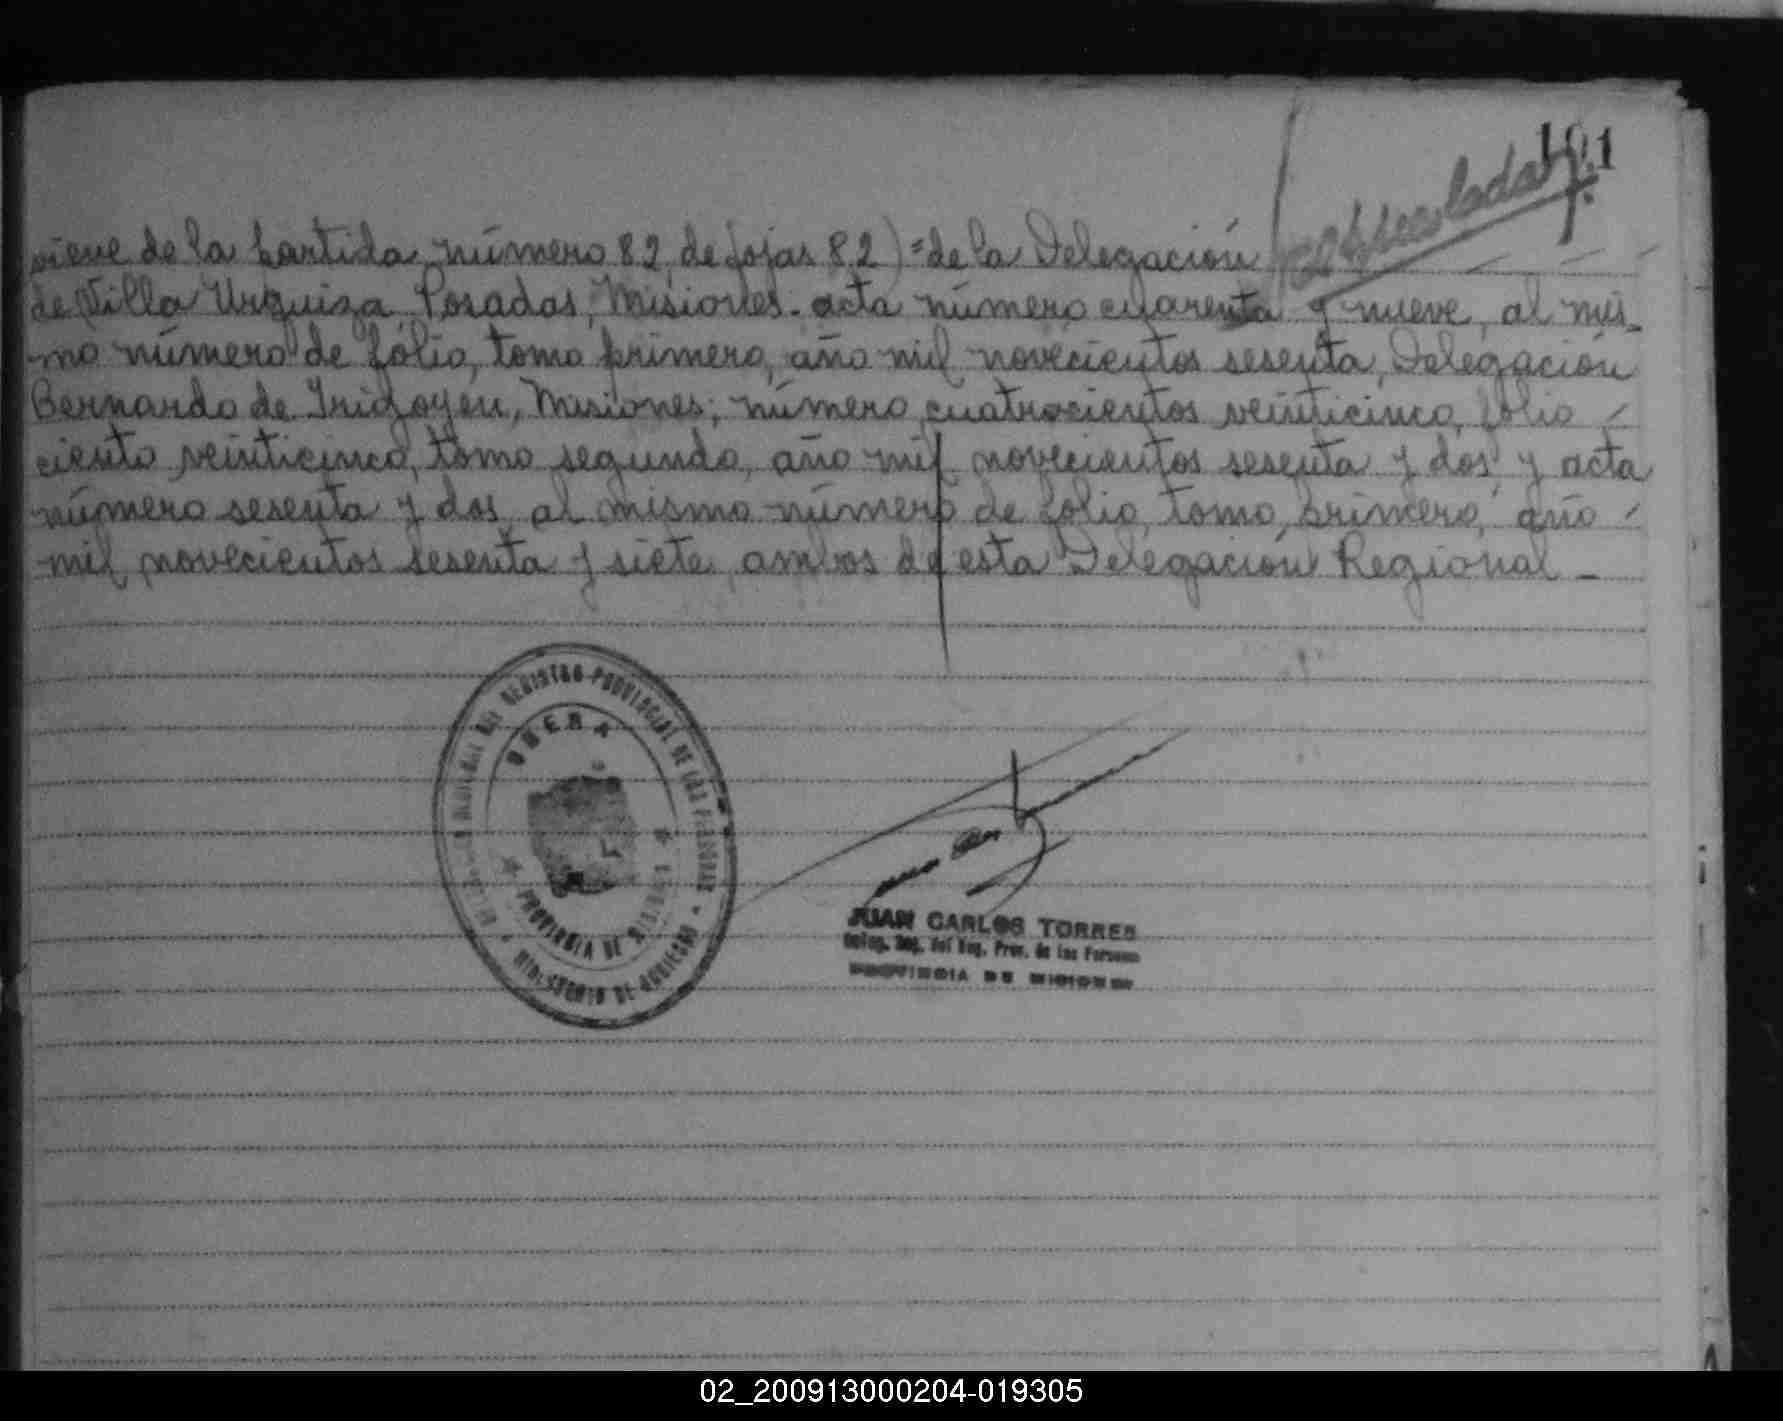 101
viene de la partida número 82, de fojas 82) = de la Delegación
de Villa Urquiza, Posadas, Misiones. acta número cuarenta y nueve, al mis-
mo número de folio, tomo primero, año mil novecientos sesenta, Delegación
Bernardo de Irigoyen, Misiones; número cuatrocientos veinticinco, folio
ciento veinticinco, tomo segundo, año mil novecientos sesenta y dos, y acta
número sesenta y dos, al mismo número de folio, tomo primero, año
mil novecientos sesenta y siete, ambos de esta Delegación Regional -
REGISTRO PROVINCIAL DE LAS PERSONAS
OBERA
PROVINCIA DE MISIONES
MINISTERIO DE GOBIERNO
JUAN CARLOS TORRES
Deleg. Reg. del Reg. Prov. de las Personas
PROVINCIA DE MISIONES
02_200913000204-019305